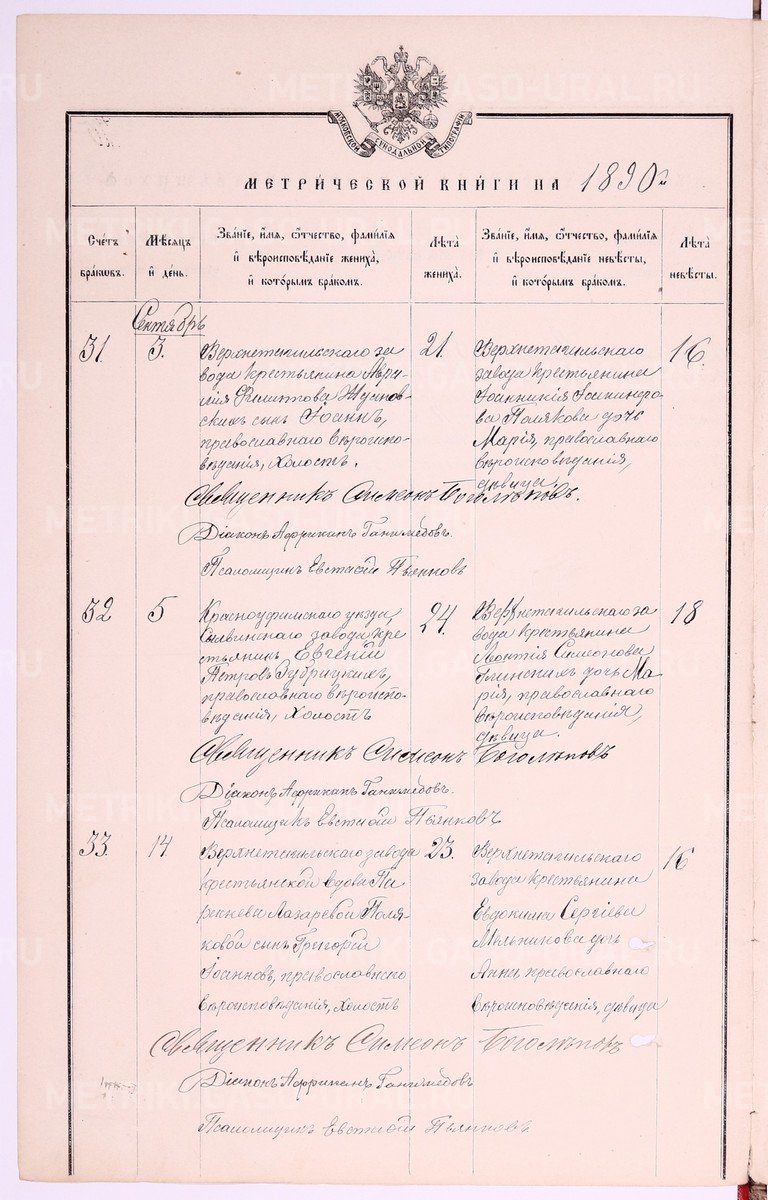 МОСКОВСКОЙ СѴНОДАЛЬНОЙ ТИПОГРАФІИ
МЕТРИ́ЧЕСКОЙ КНИ́ГИ НА 1890 г.
Сче́тъ бра́ковъ.
Мѣ́сяцъ и де́нь.
Зва́ніе, и́мя, ѻ́тчество, фами́лія и вѣроисповѣ́даніе жениха́, и кото́рымъ бра́комъ.
Лѣ́та жениха́.
Зва́ніе, и́мя, ѻ́тчество, фами́лія и вѣроисповѣ́даніе невѣ́сты, и кото́рымъ бра́комъ.
Лѣ́та невѣ́сты.
Сентябрь
31. 3.
Верхнетагильскаго за
вода крестьянина
Филиппова
сынъ Іоаннъ,
православнаго вѣроиспо-
вѣданія, холостъ.
21.
Верхнетагильскаго
завода крестьянина
Іоанникія
Полякова дочь
Марія, православнаго
вѣроисповѣданія,
дѣвица.
16.
Священникъ Симеонъ Боголѣповъ.
Діаконъ Африканъ Ганимедовъ.
Псаломщикъ Евстафій Пьянковъ
32 5
Красноуфимскаго уѣзда,
Сылвинскаго завода кре
стьянинъ Евгеній
Петровъ Зубрицкихъ,
православнаго вѣроиспо-
вѣданія, холостъ
24.
Верхнетагильскаго за
вода крестьянина
Леонтія Симеонова
дочь Ма
рія, православнаго
вѣроисповѣданія,
дѣвица.
18
Священникъ Симеонъ Боголѣповъ
Діаконъ Африканъ Ганимедовъ.
Псаломщикъ Евстафій Пьянковъ
33. 14.
Верхнетагильскаго завода
крестьянской вдовы Па
раскевы Лазаревой Поля
ковой сынъ Григорій
Іоанновъ, православнаго
вѣроисповѣданія, холостъ
23.
Верхнетагильскаго
завода крестьянина
Евдокима Сергіева
Мельникова дочь
Анна православнаго
вѣроисповѣданія, дѣвица
16
Священникъ Симеонъ Боголѣповъ
Діаконъ Африканъ Ганимедовъ
Псаломщикъ Евстафій Пьянковъ